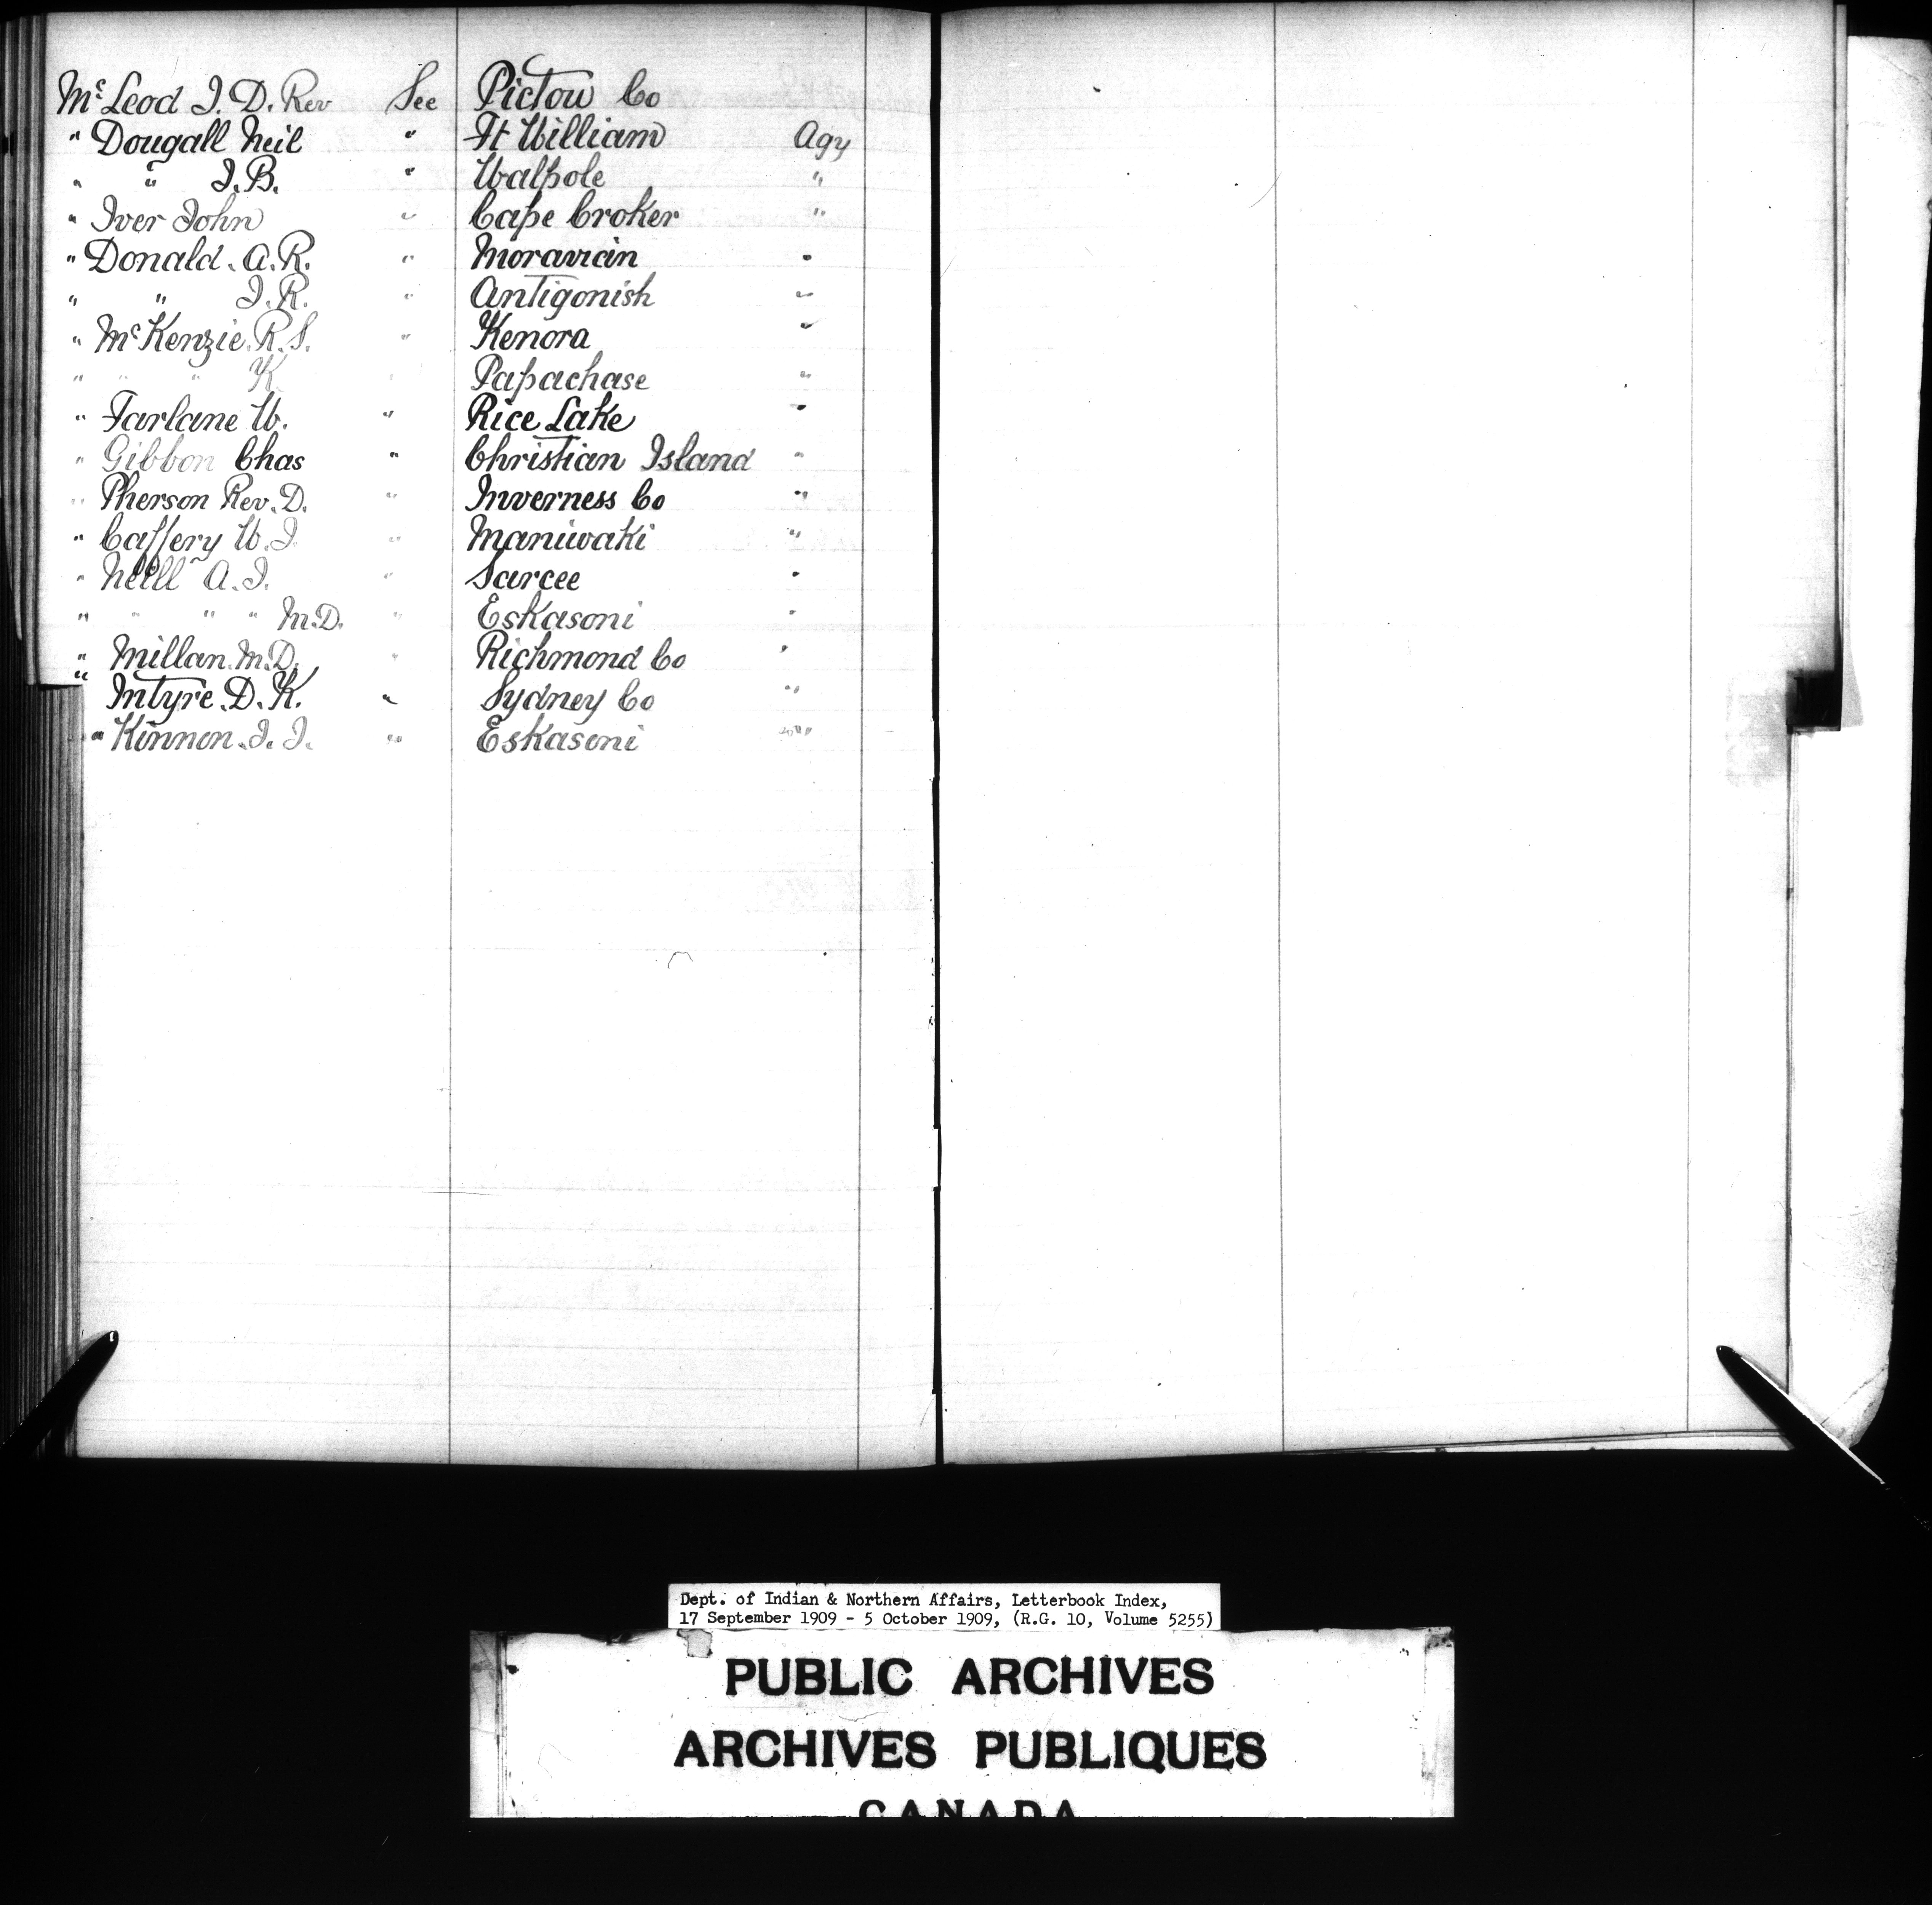 Mc Leod J. D. Rev See Pictou Co
" Dougall Neil " Ft William Agy
" " J. B. " Walpole "
" Iver John " Cape Croker "
" Donald. A. R. " Moravian "
" " J. R. " Antigonish "
" McKenzie. R. S. " Kenora "
" " " K. " Papachase "
" Farlane W. " Rice Lake "
" Gibbon Chas " Christian Island "
" Pherson Rev. D. " Inverness Co "
" Caffery W. J. " Maniwaki "
" Neill A. J. " Sarcee "
" " " " M. D. " Eskasoni "
" Millan. M. D. " Richmond Co "
" Intyre. D. K. " Sydney Co "
" Kinnon. J. J. " Eskasoni "
Dept. of Indian & Northern Affairs, Letterbook Index,
17 September 1909 - 5 October 1909, (R.G. 10, Volume 5255)
PUBLIC ARCHIVES
ARCHIVES PUBLIQUES
CANADA